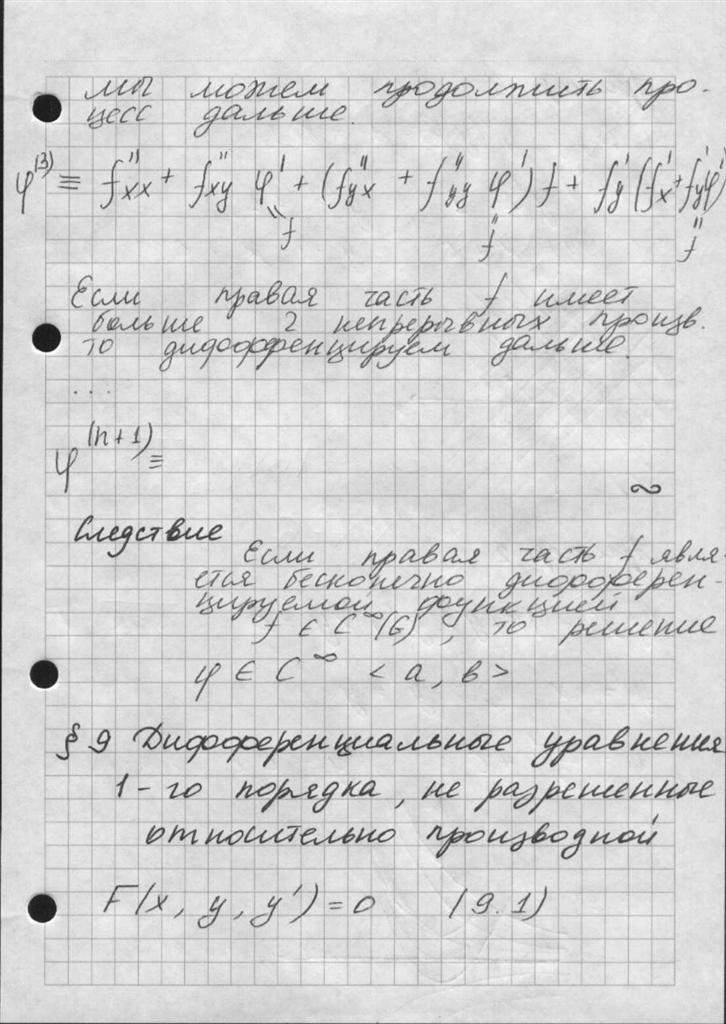 мы можем продолжить про-
цесс дальше.
φ⁽³⁾ ≡ f''xx + fxy'' φ' + (fyx'' + f''yy φ') f + fy' (fx' + fy'φ')
" f " f " f
Если правая часть f имеет
больше 2 непрерывных произв.
то дифференцируем дальше.
....
φ⁽ⁿ⁺¹⁾ ≡
∾
Следствие
Если правая часть f явля-
ется бесконечно дифферен-
цируемой функцией
f ∈ C^∞(G), то решение
φ ∈ C^∞ <a, в>
§ 9 Дифференциальные уравнения
1-го порядка, не разрешенные
относительно производной
F(x, y, y') = 0 (9.1)